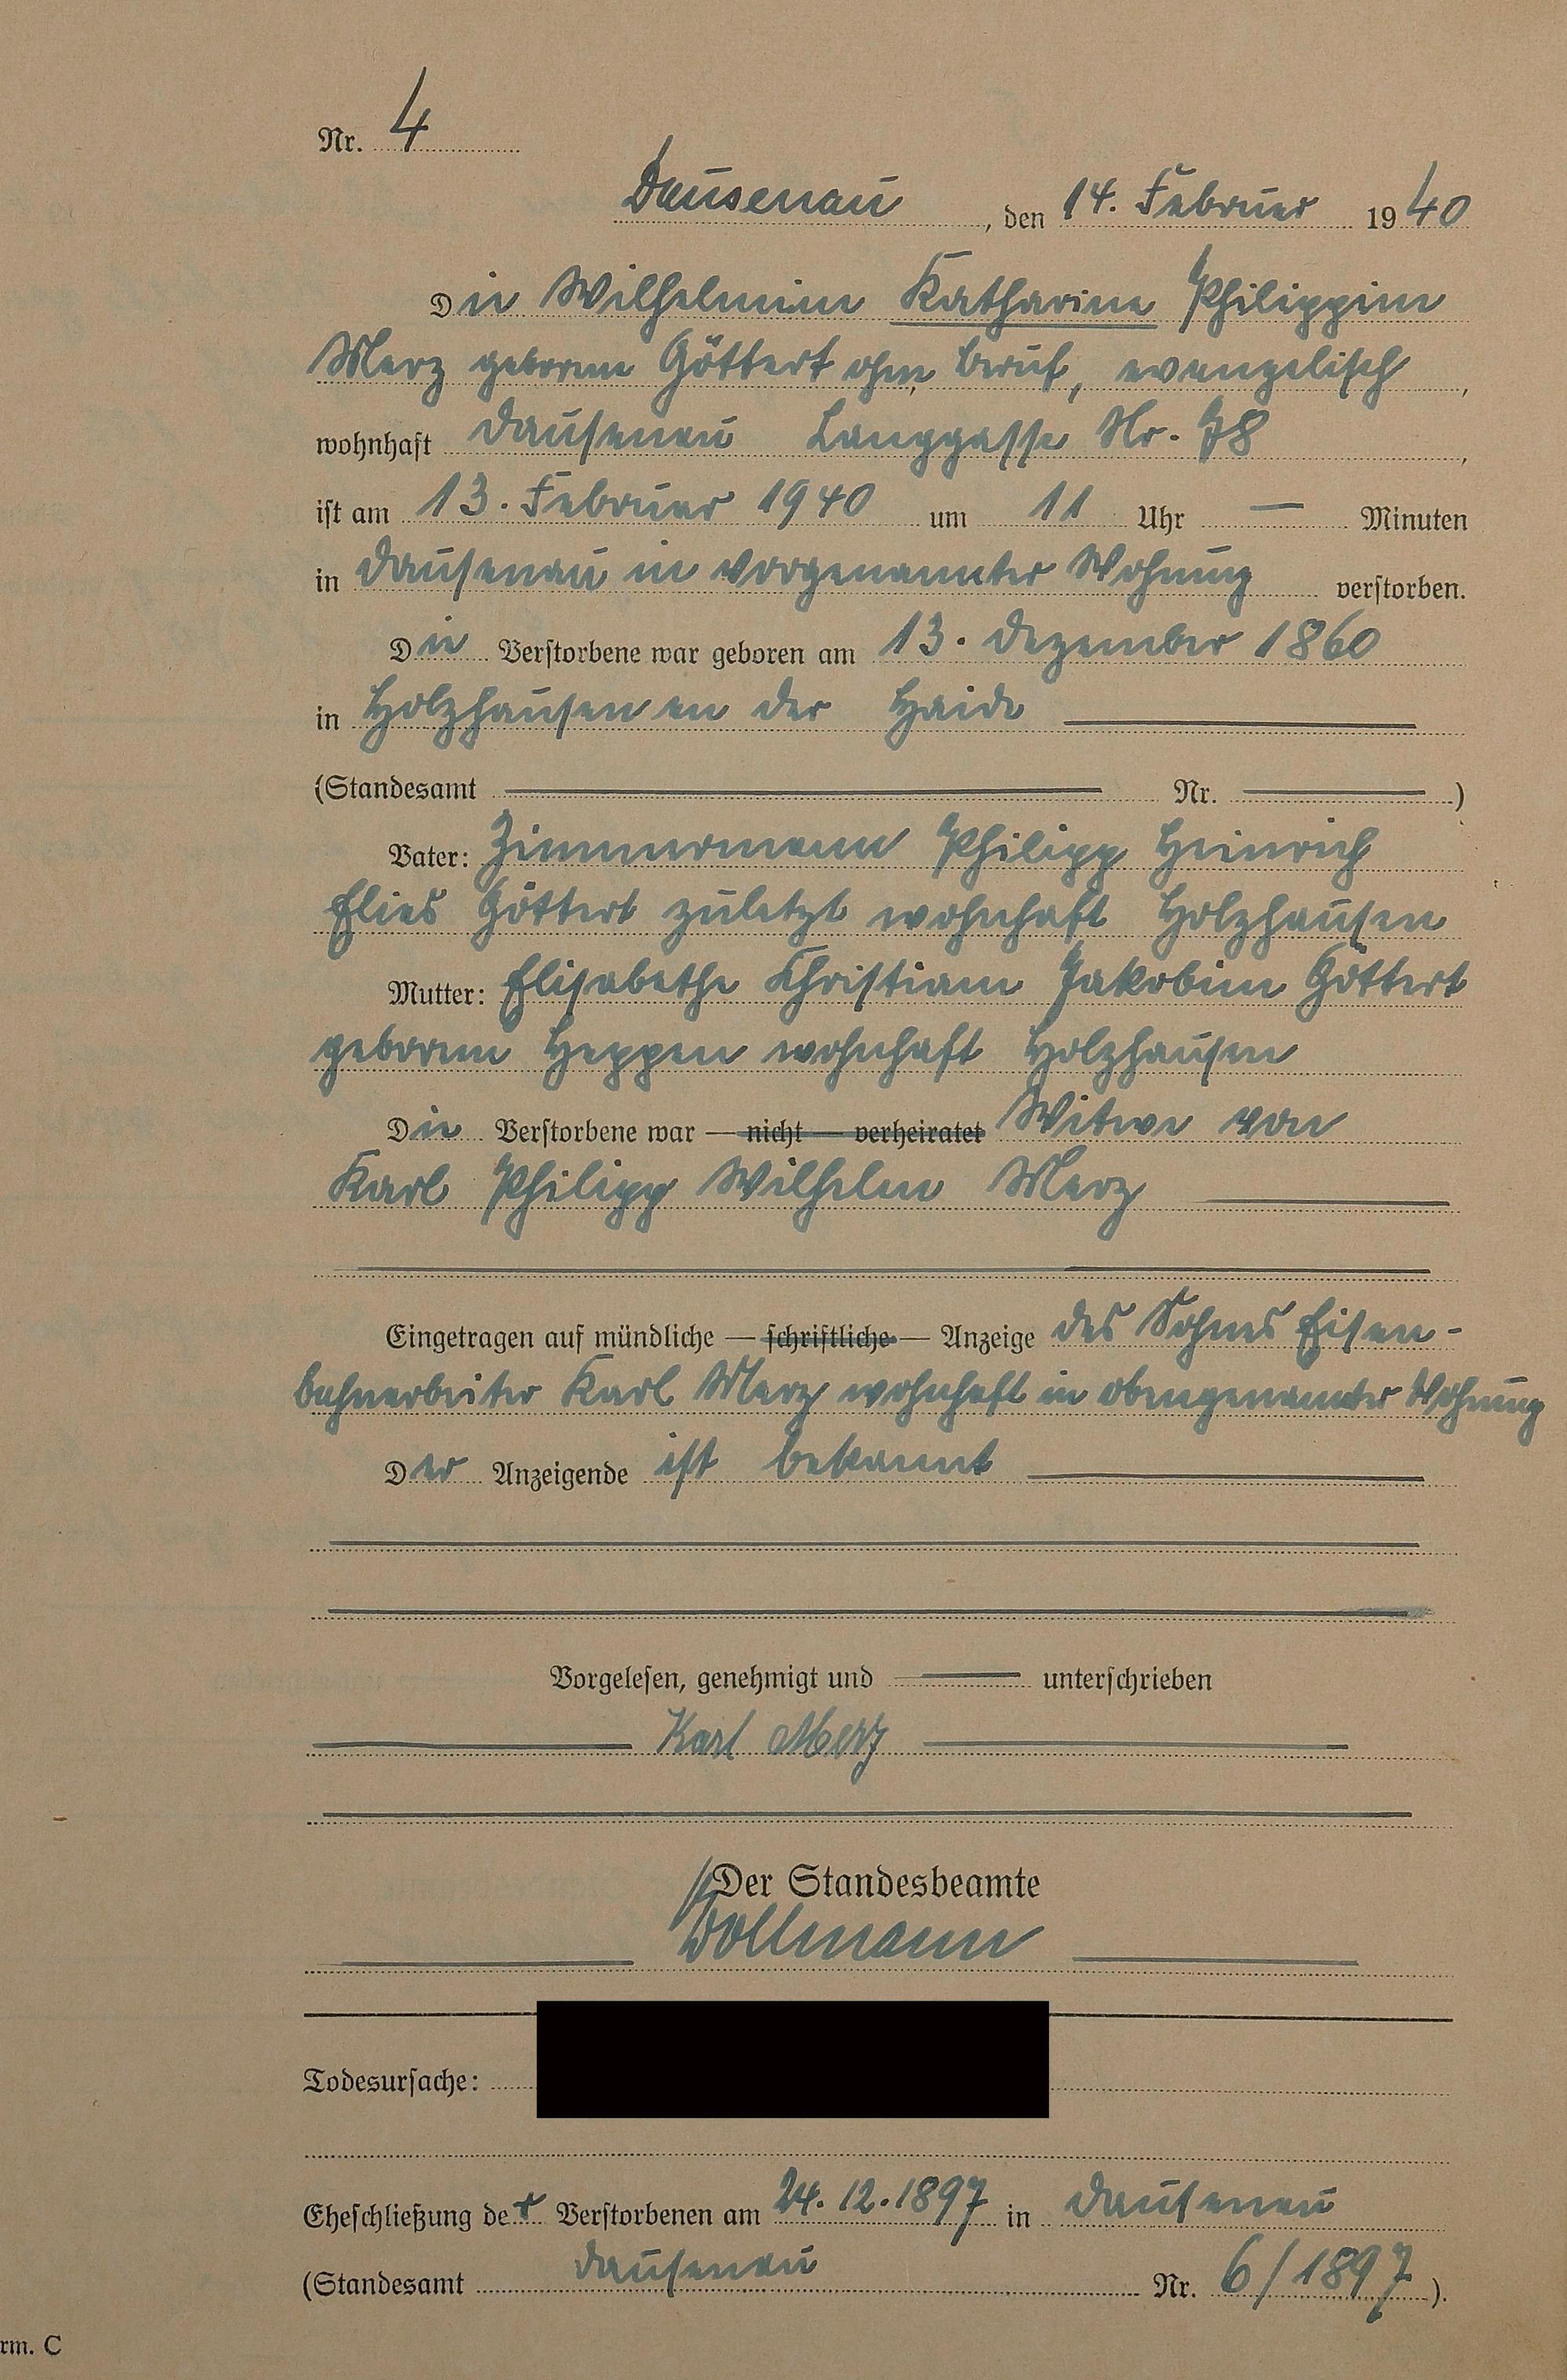 Nr. 4
Dausenau, den 14. Februar 1940
Die Wilhelmine Katharine Philippine
Merz geborene Göttert ohne Beruf, evangelisch,
wohnhaft Dausenau Langgasse Nr. 78,
ist am 13. Februar 1940 um 11 Uhr — Minuten
in Dausenau in vorgenannter Wohnung verstorben.
Die Verstorbene war geboren am 13. Dezember 1860
in Holzhausen an der Haide
(Standesamt Nr. )
Vater: Zimmermann Philipp Heinrich
Elias Göttert zuletzt wohnhaft Holzhausen
Mutter: Elisabethe Christiane Jakobine Göttert
geborene Heppen wohnhaft Holzhausen
Die Verstorbene war — nicht — verheiratet Witwe von
Karl Philipp Wilhelm Merz
Eingetragen auf mündliche — schriftliche — Anzeige des Sohnes Eisen-
bahnarbeiter Karl Merz wohnhaft in obengenannter Wohnung
Der Anzeigende ist bekannt
Vorgelesen, genehmigt und unterschrieben
Karl Merz
Der Standesbeamte
Dollmann
Todesursache:
Eheschließung der Verstorbenen am 24.12.1897 in Dausenau
(Standesamt Dausenau Nr. 6/1897).
rm. C